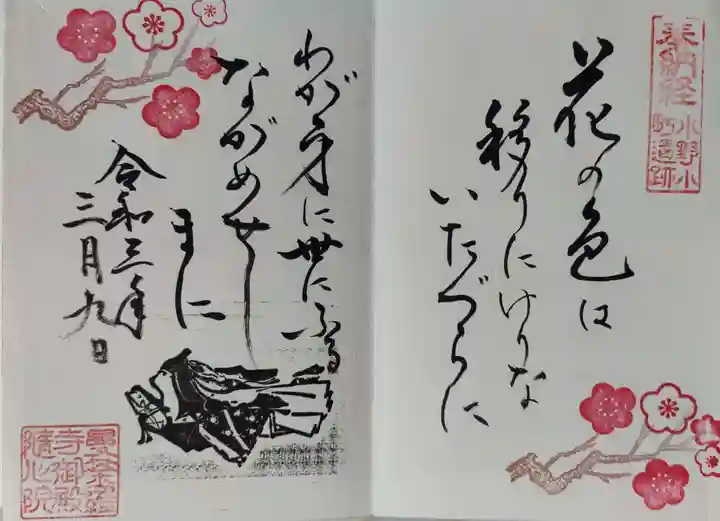 奉納経
小野小
町遺跡
花の色は
移りにけりな
いたづらに
わが身に世にふる
ながめせし
まに
令和三年
三月九日
曼荼羅
寺御殿
随心院